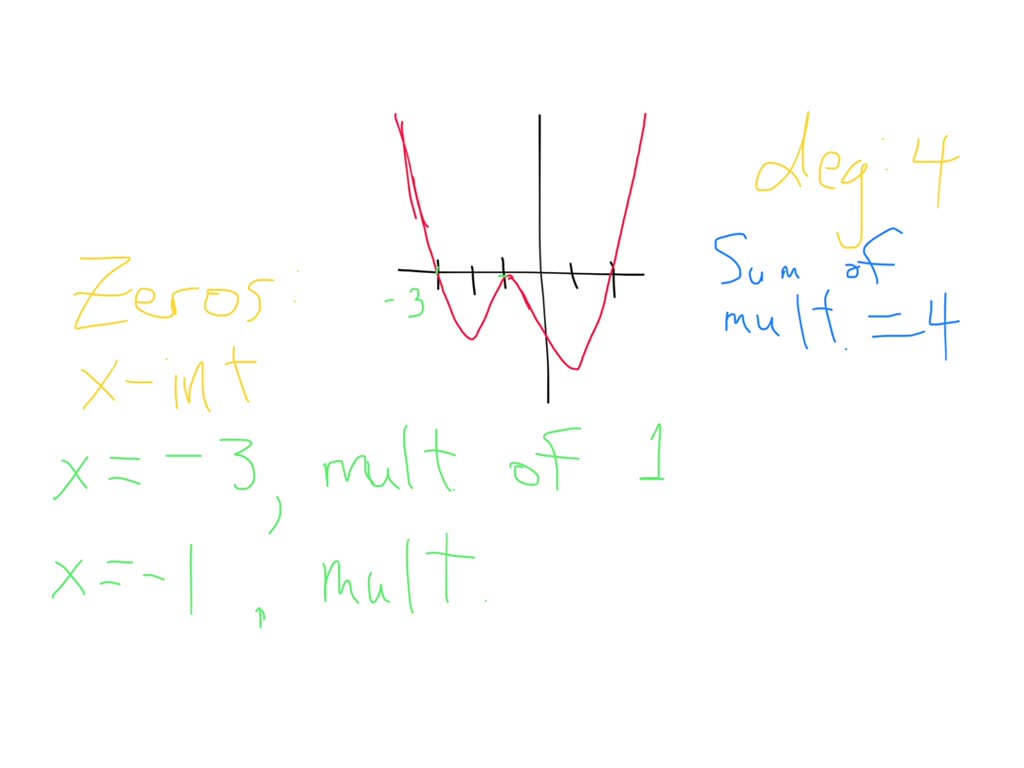 deg: 4
Sum of
mult. = 4
-3
Zeros:
x-int
x = -3, mult of 1
x = -1, mult.